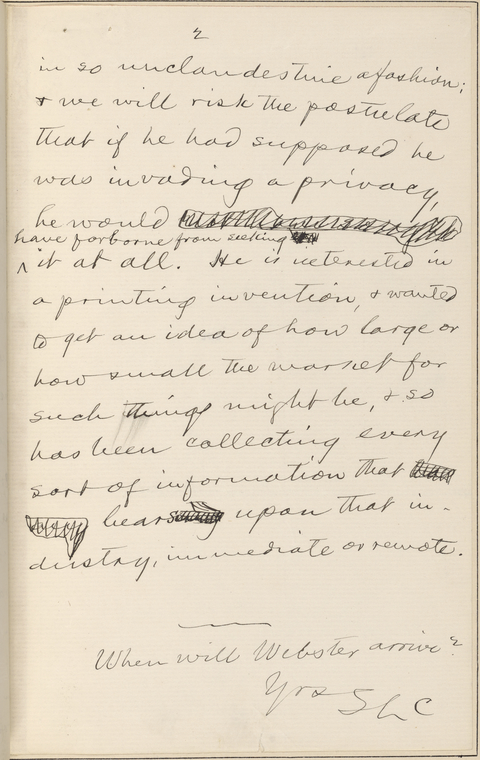 2
in so unclandestine a fashion;
& we will risk the postulate
that if he had supposed he
was invading a privacy,
he would
have forborne from seeking
it at all. He is interested in
a printing invention, & wanted
to get an idea of how large or
how small the market for
such things might be, & so
has been collecting every
sort of information that
bears upon that in-
dustry, immediate or remote.
When will Webster arrive?
Yrs SLC